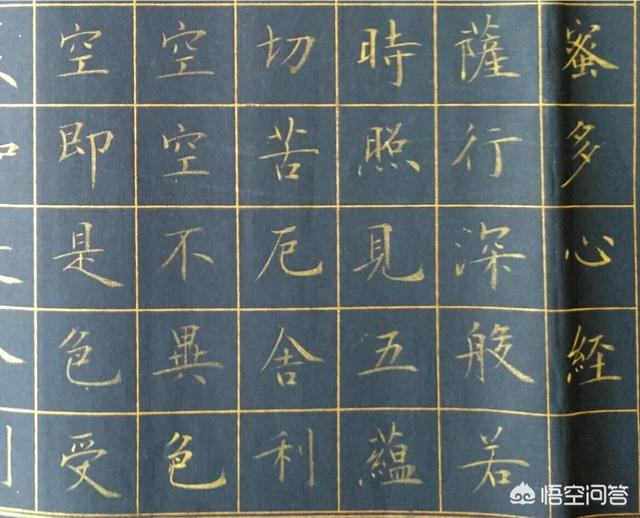 蜜多心経
薩行深般若
時照見五蘊
切苦厄舍利
空空不異色
空即是色受
悟空问答